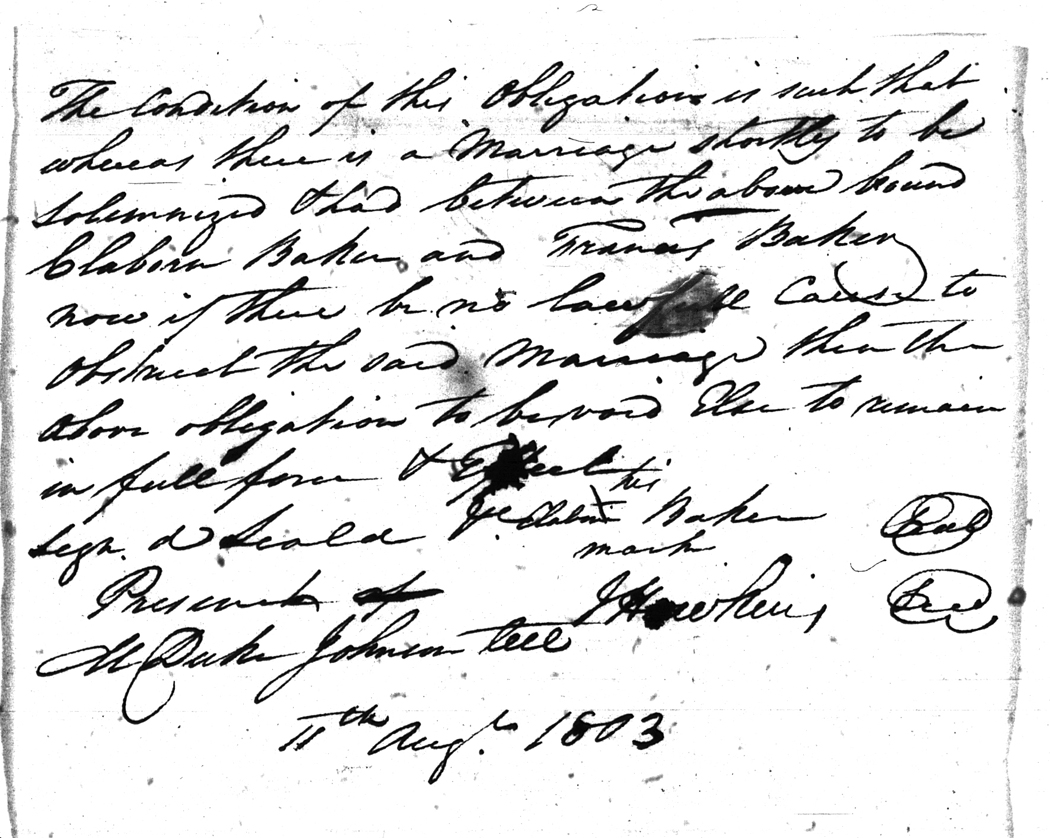 The Condition of this Obligation is such that
whereas there is a Marriage shortly to be
Solemnized & had between the above bound
Claborn Baker and Francis Baker
now if there be no lawfull Cause to
Obstruct the said Marriage then the
above obligation to be void Else to remain
in full force & Effect his
Sign. d Seald &c Claborn X Baker Seal
mark
Present of J Hawkins Seal
M Duke Johnson
11th Augt. 1803